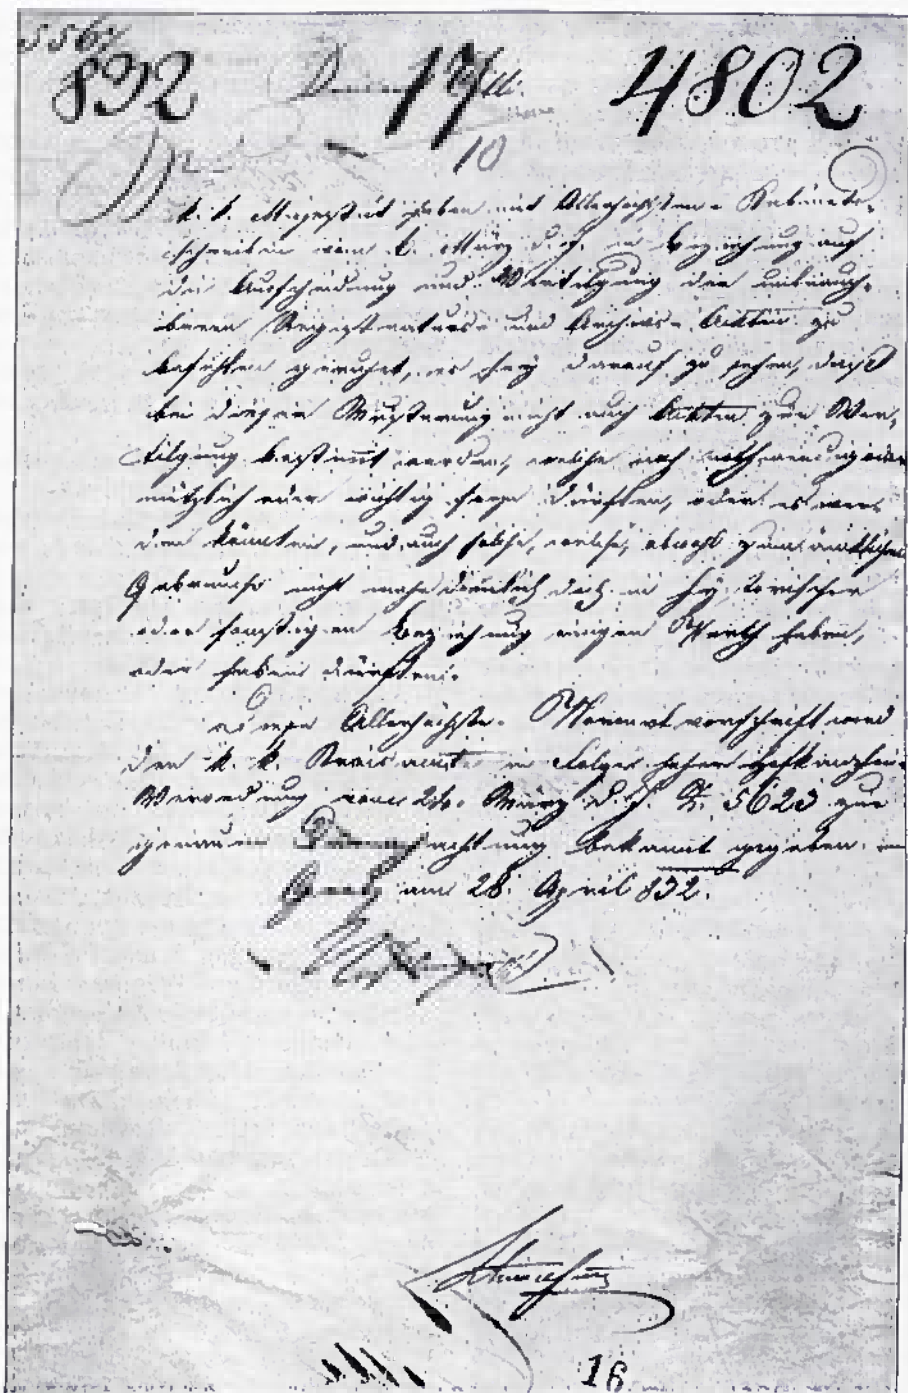 5567
832 17 4802
10
k. k. Majestät haben mit Allerhöchsten Kabinets-
schreiben vom 6. März d. J. in Beziehung auf
die Ausscheidung und Vertilgung der unbrauch-
baren Registraturs- und Archivs-Akten zu
befehlen geruhet, es sey darauf zu sehen, daß
bei dieser Musterung nicht auch Akten zur Ver-
tilgung bestimmt werden, welche noch nothwendig oder
nützlich oder wichtig seyn dürften, oder es wer-
den könnten, und auch solche, welche, obwohl zum ämtlichen
Gebrauche nicht mehr dienlich doch in hystorischer
oder sonstigen Beziehung einigen Werth haben,
oder haben dürften.
Diese Allerhöchste Vorschrift wird
dem k. k. Kreisamte in Folge hoher Hofkanzlei-
Verordnung vom 24. März d. J. Z. 5623 zur
genauen Darnachachtung bekannt gegeben.
Gratz am 28. April 832.
16